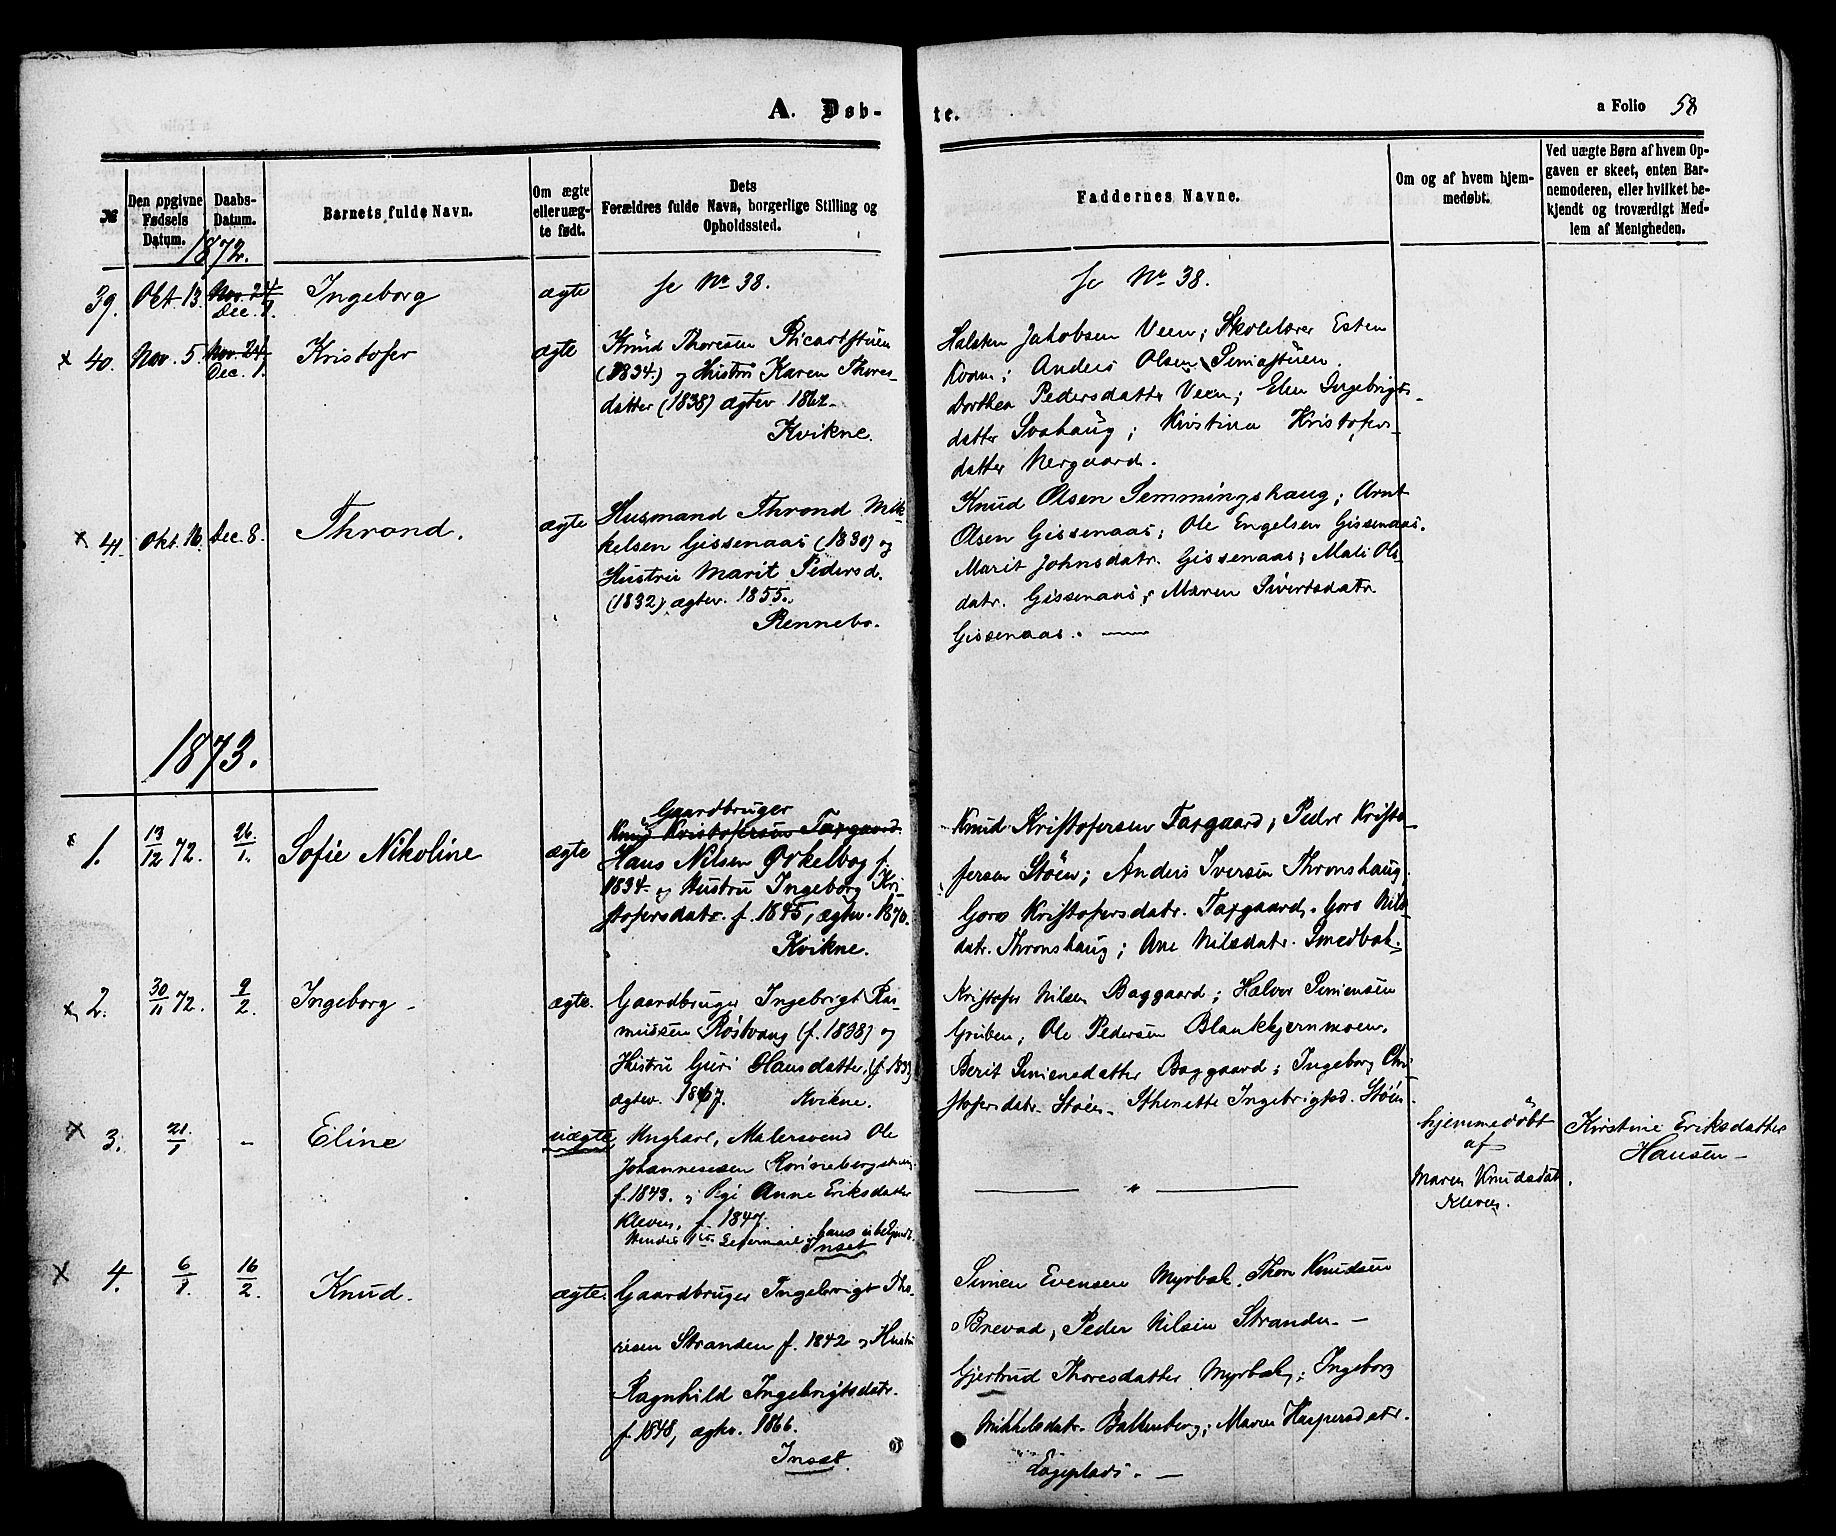 A. Døb-
te.
a Folio 58
№
Den opgivne Fødsels Datum.
Daabs-Datum.
Barnets fulde Navn.
Om ægte eller uæg-te født.
Dets Forældres fulde Navn, borgerlige Stilling og Opholdssted.
Faddernes Navne.
Om og af hvem hjem-medøbt.
Ved uægte Børn af hvem Op-gaven er skeet, enten Bar-nemoderen, eller hvilket be-kjendt og troværdigt Med-lem af Menigheden.
1872.
39. Okt. 13. Nov. 24 Dec. 1. Ingeborg ægte se No 38. se No 38.
x 40. Nov. 5. Nov. 24. Dec. 1. Kristofer ægte
Knud Thoresen Ricartstuen
(1834.) og Hustru Karen Thores-
datter (1838) ægtev. 1862.
Kvikne.
Halsten Jakobsen Veen; Skolelærer Esten
Kvam; Anders Olsen Simastuen.
Dorthea Pedersdatter Veen; Elen Ingebrigts-
datter Svahaug; Kristina Kristofers-
datter Nergaard.
x 41. Okt. 16. Dec. 8. Thrond. ægte
Husmand Thrond Mik-
kelsen Gissenaas (1830) og
Hustru Marit Pedersd.
(1832), ægtev. 1855.
Rennebo.
Knud Olsen Semmingshaug; Arnt
Olsen Gissenaas; Ole Engelsen Gissenaas.
Marit Johnsdatr. Gissenaas; Mali Ols-
datr. Gissenaas; Maren Sivertsdatr
Gissenaas. —
1873.
x 1. 13/12 72. 26/1. Sofie Nikoline ægte
Gaardbruger
Knud Kristofersen Faxgaard.
Hans Nilsen Orkelbog f.
1834. og Hustru Ingeborg Kri-
stofersdatr. f. 1845, ægtev. 1870.
Kvikne.
Knud Kristofersen Faxgaard; Peder Kristo-
fersen Støen; Anders Iversen Thronshaug;
Goro Kristofersdatr. Faxgaard, Goro Nils-
datr. Thronshaug; Ane Nilsdatr. Smedbak.
x 2. 30/11 72. 9/2. Ingeborg - ægte.
Gaardbruger Ingebrigt Ras-
mussen Røstvang (f. 1838) og
Hustru Guri Hansdatter, (f. 1839
ægtev. 1867. Kvikne.
Kristofer Nilsen Baggaard; Halvor Simensen
Gruben; Ole Pedersen Blankkjernmoen.
Berit Simensdatter Baggaard; Ingeborg Chri-
stofersdatr. Støen. Thenette Ingebrigtsd. Støen
x 3. 21/1 - Eline uægte
Ungkarl, Malersvend Ole
Johannessen
f. 1843. og Pige Anne Eriksdatter
Kleven, f. 1847.
Hendes 1ste Leiermaal, hans ubekjendt.
Inset
— " —
hjemmedøbt
af
Maren Knudsdat.
Kleven.
Kirstine Eriksdatter
Hansen -
x 4. 6/1 16/2. Knud. ægte.
Gaardbruger Ingebrigt Tho-
resen Stranden f. 1842 og Hustru
Ragnhild Ingebrigtsdatr.
f. 1848, ægtev. 1866.
Inset.
Simen Evensen Myrbak, Thore Knudsen
Brevad, Peder Nilsen Stranden -
Gjertrud Thoresdatter Myrbak; Ingeborg
Mikkelsdatr. Bakkenberg; Maren Kaspersdatr.